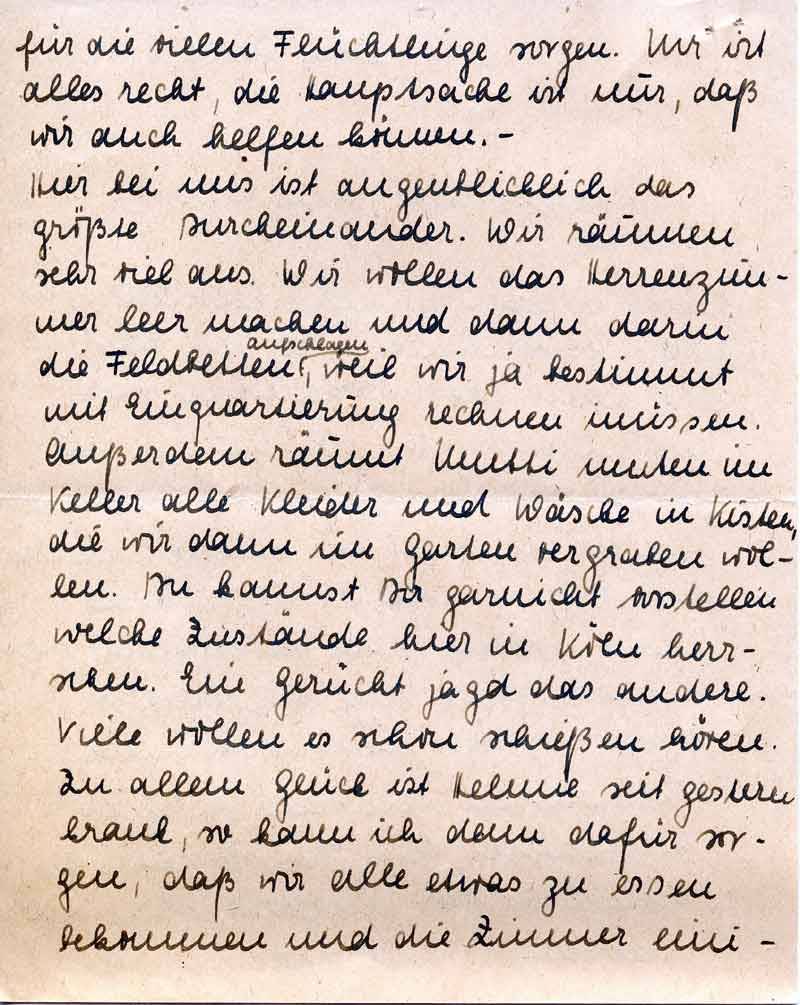 für die vielen Flüchtlinge sorgen. Mir ist
alles recht, die Hauptsache ist nur, daß
wir auch helfen können. –
Hier bei uns ist augenblicklich das
größte Durcheinander. Wir räumen
sehr viel aus. Wir wollen das Herrenzim-
mer leer machen und dann darin
aufschlagen
die Feldbetten, weil wir ja bestimmt
mit Einquartierung rechnen müssen.
Außerdem räumt Mutti unten im
Keller alle Kleider und Wäsche in Kisten,
die wir dann im Garten vergraben wol-
len. Du kannst Dir garnicht vorstellen
welche Zustände hier in Köln herr-
schen. Ein Gerücht jagd das andere.
Viele wollen es schon schießen hören.
Zu allem Glück ist Helmie seit gestern
krank, so kann ich denn dafür sor-
gen, daß wir alle etwas zu essen
bekommen und die Zimmer eini-